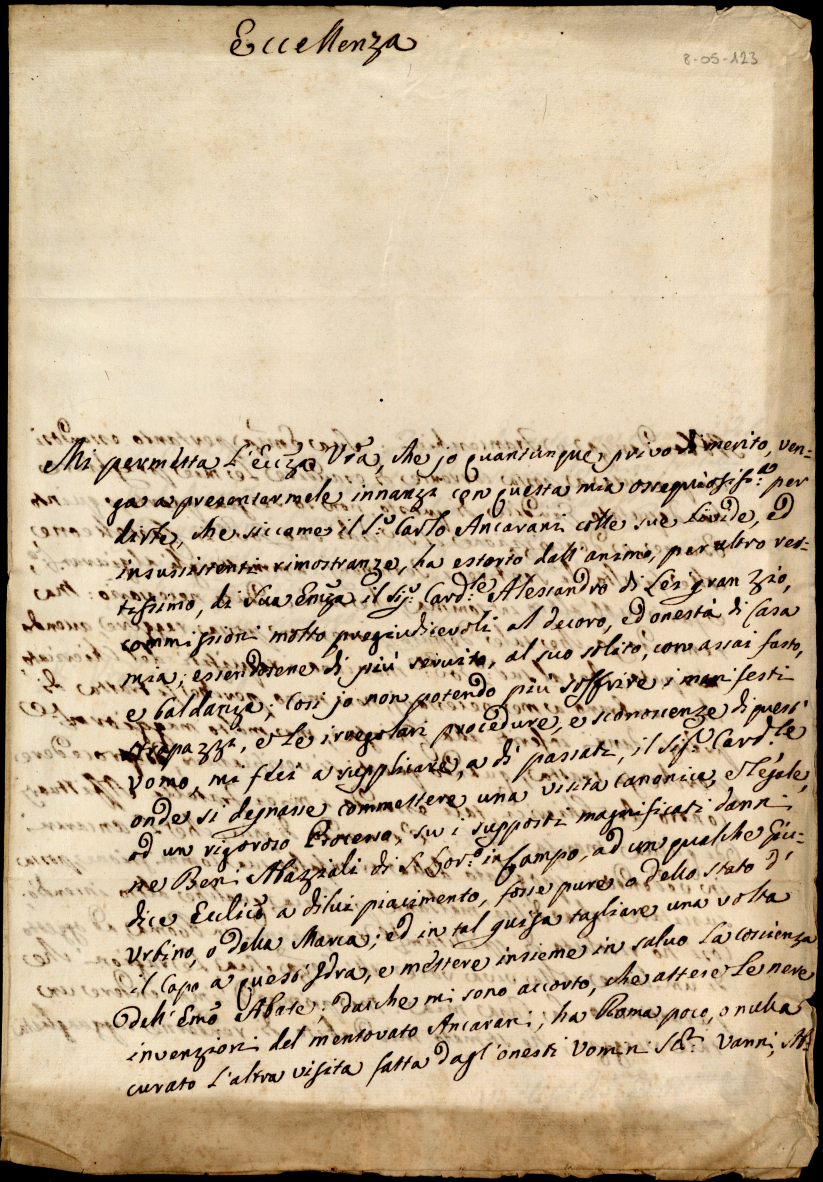 Eccellenza
8-05-123
Mi permetta L'Ecc.za Vrã, che jo quantunque privo di merito, ven-
ga a presentarmele innanzi con questa mia ossequiosiss.ma per
dirle, che siccome il S.r Carlo Ancarani colle sue Livide, ed
insussistenti rimostranze, ha estorto dall'animo, per altro ret-
tissimo, di Sua Emza il Sig.r Card.le Alessandro di Lei gran Zio,
commissioni molto pregiudicevoli al decoro, ed onestà di Casa
mia, essendosene di più servito, al suo solito, con assai fasto,
e baldanza; Così jo non potendo più soffrire i manifesti
strapazzi, e Le irregolari procedure, e sconoscenze di quest'
Vomo, mi feci a supplicare, a dì passati, il Sig.r Card.le
onde si degnasse commettere una visita Canonica, e Legale,
od un rigoroso Processo, su i supposti magnificati danni
ne Beni Abazziali di S. Lor.o in Campo, ad un qualche Giu-
dice Ecclicõ a dilui piacimento, fosse pure o dello stato d'
Urbino, o della Marca; ed in tal guisa tagliare una volta
il Capo a quest'Idra, e mettere insieme in salvo La coscienza
dell'Emõ Abate; Dacche mi sono accorto, che attese Le nere
invenzioni del mentovato Ancarani, ha Roma poco, o nulla
curato L'altra visita fatta dagl'onesti Vomini Vanni,